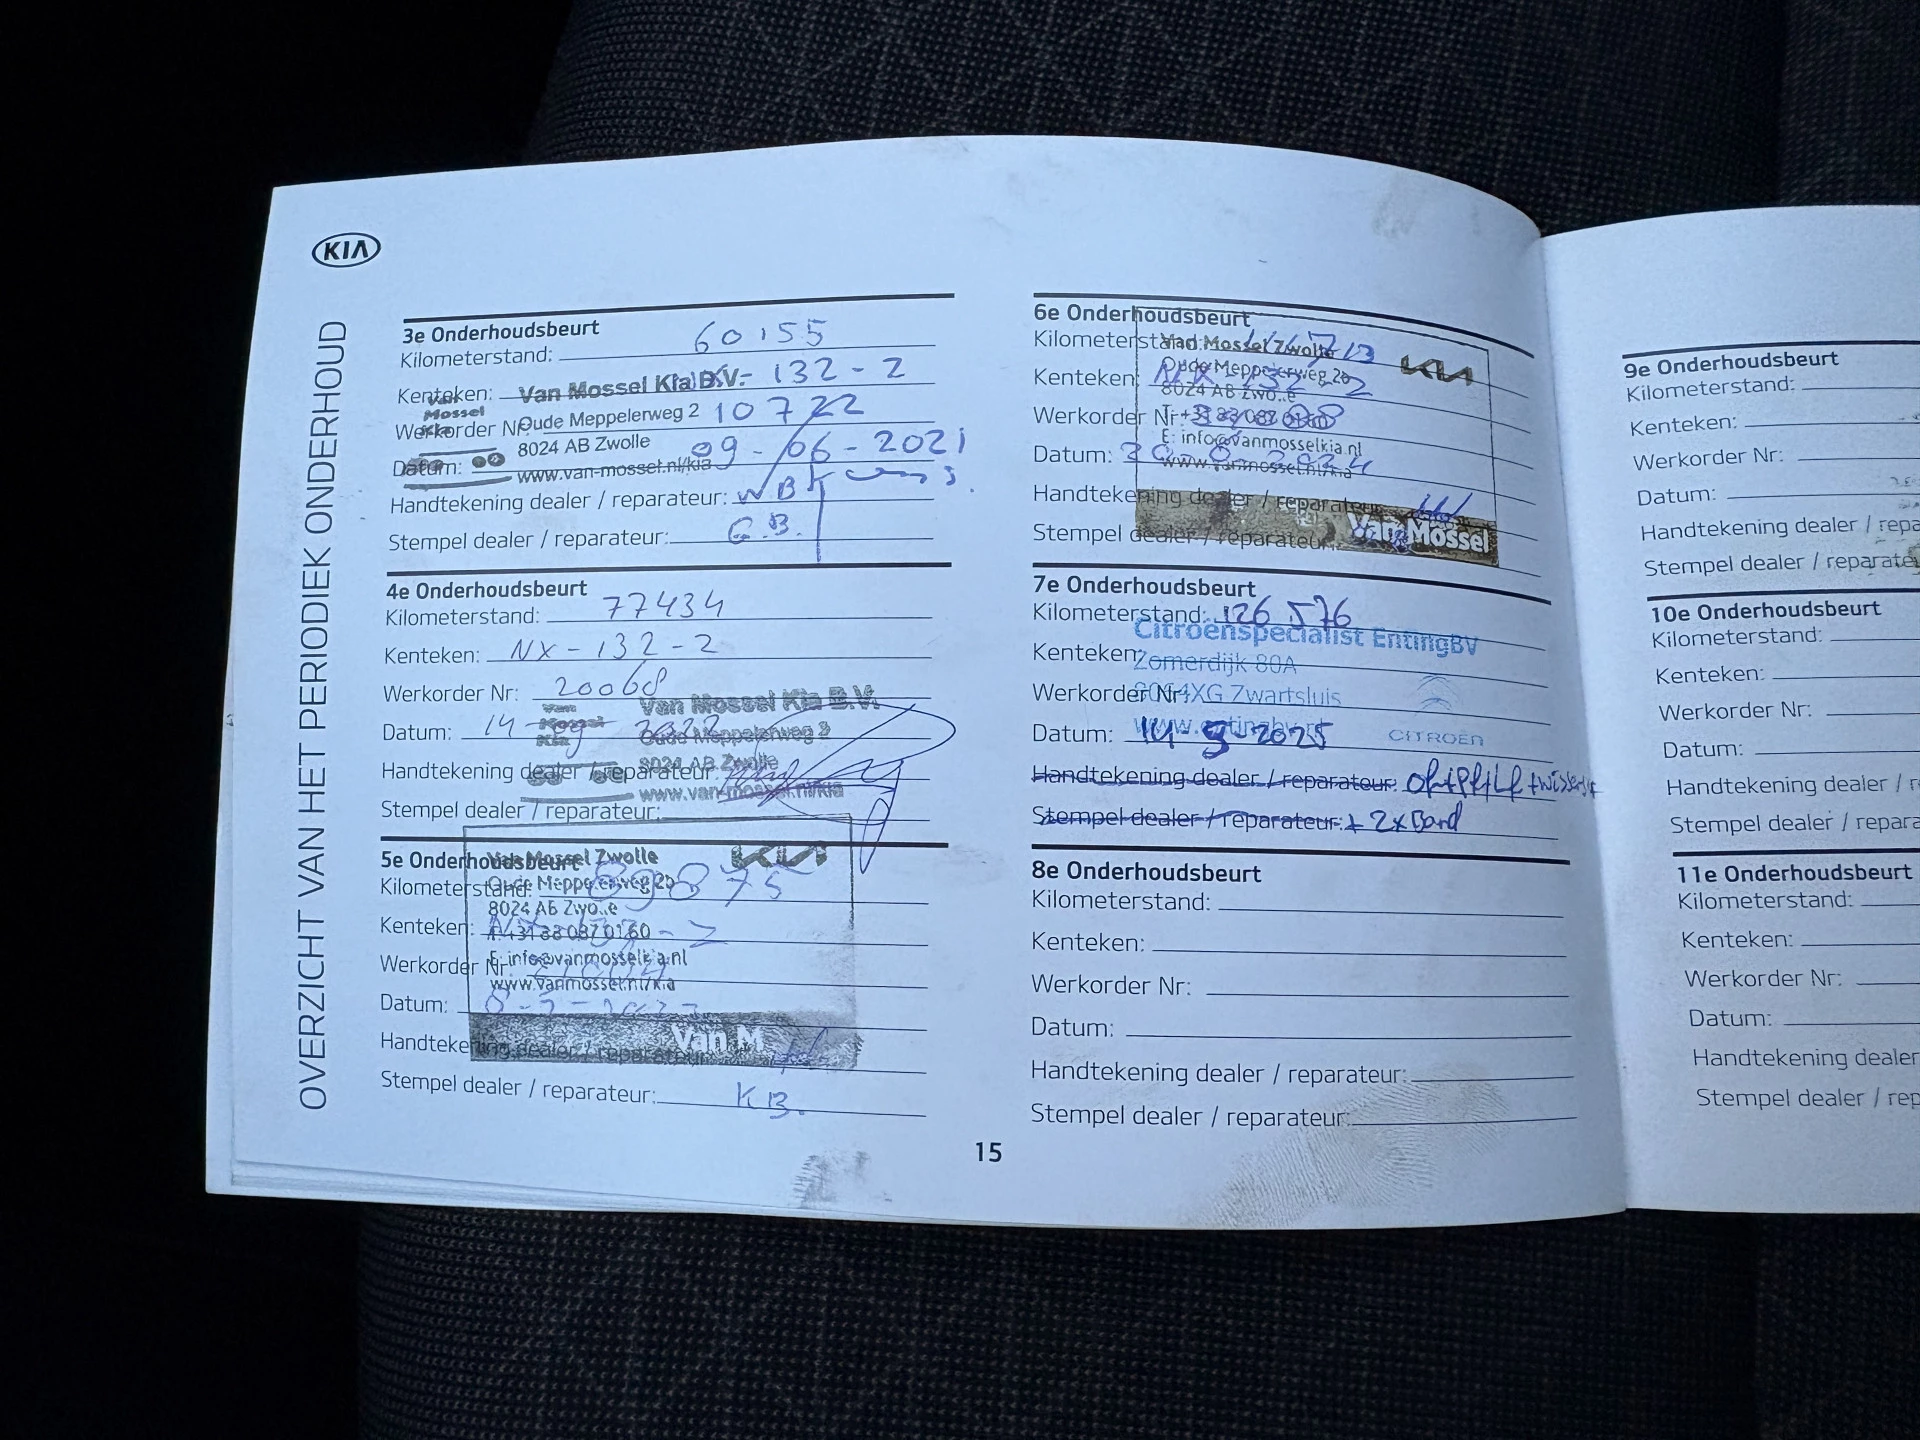 KIA
OVERZICHT VAN HET PERIODIEK ONDERHOUD
3e Onderhoudsbeurt
Kilometerstand: 60155
Kenteken: 132-2
Van Mossel Kia B.V.
Van Mossel Kia
Werkorder Nr: 10722
Oude Meppelerweg 2
8024 AB Zwolle
Datum: 09-06-2021
www.van-mossel.nl/kia
Handtekening dealer / reparateur: WB
Stempel dealer / reparateur: G.B.
4e Onderhoudsbeurt
Kilometerstand: 77434
Kenteken: NX-132-2
Werkorder Nr: 20068
Van Mossel Kia B.V.
Van Mossel Kia
Datum: 14 2022
Oude Meppelerweg 2
8024 AB Zwolle
Handtekening dealer / reparateur:
www.van-mossel.nl/kia
Stempel dealer / reparateur:
5e Onderhoudsbeurt
Van Mossel Zwolle
KIA
Kilometerstand: 89875
Oude Meppelerweg 2b
8024 AB
Kenteken: 2
Werkorder Nr:
E: info@vanmosselkia.nl
www.vanmossel.nl/kia
Datum:
Van M
Handtekening dealer / reparateur:
Stempel dealer / reparateur: KB.
6e Onderhoudsbeurt
Kilometerstand:
Mossel Zwolle
KIA
Oude Meppelerweg 2b
Kenteken: 2
8024 AB
Werkorder Nr:
E: info@vanmosselkia.nl
Datum:
www.vanmossel.nl/kia
Handtekening dealer / reparateur:
Van Mossel
Stempel dealer / reparateur:
7e Onderhoudsbeurt
Kilometerstand: 126576
Citroënspecialist Enting BV
Kenteken:
Zomerdijk 80A
Werkorder Nr:
XG Zwartsluis
www.entingbv.nl
Datum: 14 5 2025
CITROËN
Handtekening dealer / reparateur:
Stempel dealer / reparateur: + 2x Band
8e Onderhoudsbeurt
Kilometerstand:
Kenteken:
Werkorder Nr:
Datum:
Handtekening dealer / reparateur:
Stempel dealer / reparateur:
15
9e Onderhoudsbeurt
Kilometerstand:
Kenteken:
Werkorder Nr:
Datum:
Handtekening dealer / repa
Stempel dealer / reparate
10e Onderhoudsbeurt
Kilometerstand:
Kenteken:
Werkorder Nr:
Datum:
Handtekening dealer / r
Stempel dealer / repara
11e Onderhoudsbeurt
Kilometerstand:
Kenteken:
Werkorder Nr:
Datum:
Handtekening dealer
Stempel dealer / rep